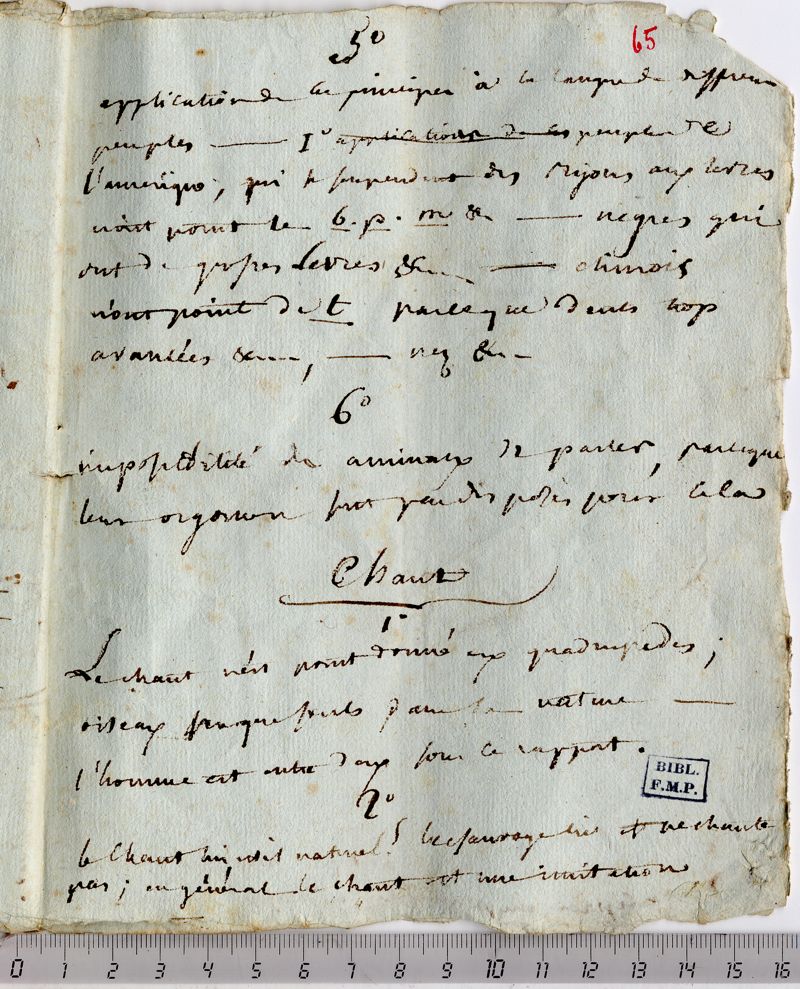 65
5°
application de ces principes à la langue de different
peuples — 1° applications de ces peuples de
l'amerique, qui se suspendent des bijoux aux levres
n'ont point le b. p. m &c — negres qui
ont de grosses levres &c — chinois
n'ont point de t parceque dents trop
avancées &c, — nez &c
6°
impossibilité des animaux de parler, parceque
leur organes sont pas disposés pour cela
Chant
1°
Le chant n'est point donné aux quadrupedes;
oiseaux presque seuls dans la nature —
l'homme est entre deux sous ce rapport.
2°
le Chant lui est naturel? le sauvage crie et ne chante
pas; en général le chant est une imitation
BIBL.
F.M.P.
0 1 2 3 4 5 6 7 8 9 10 11 12 13 14 15 16